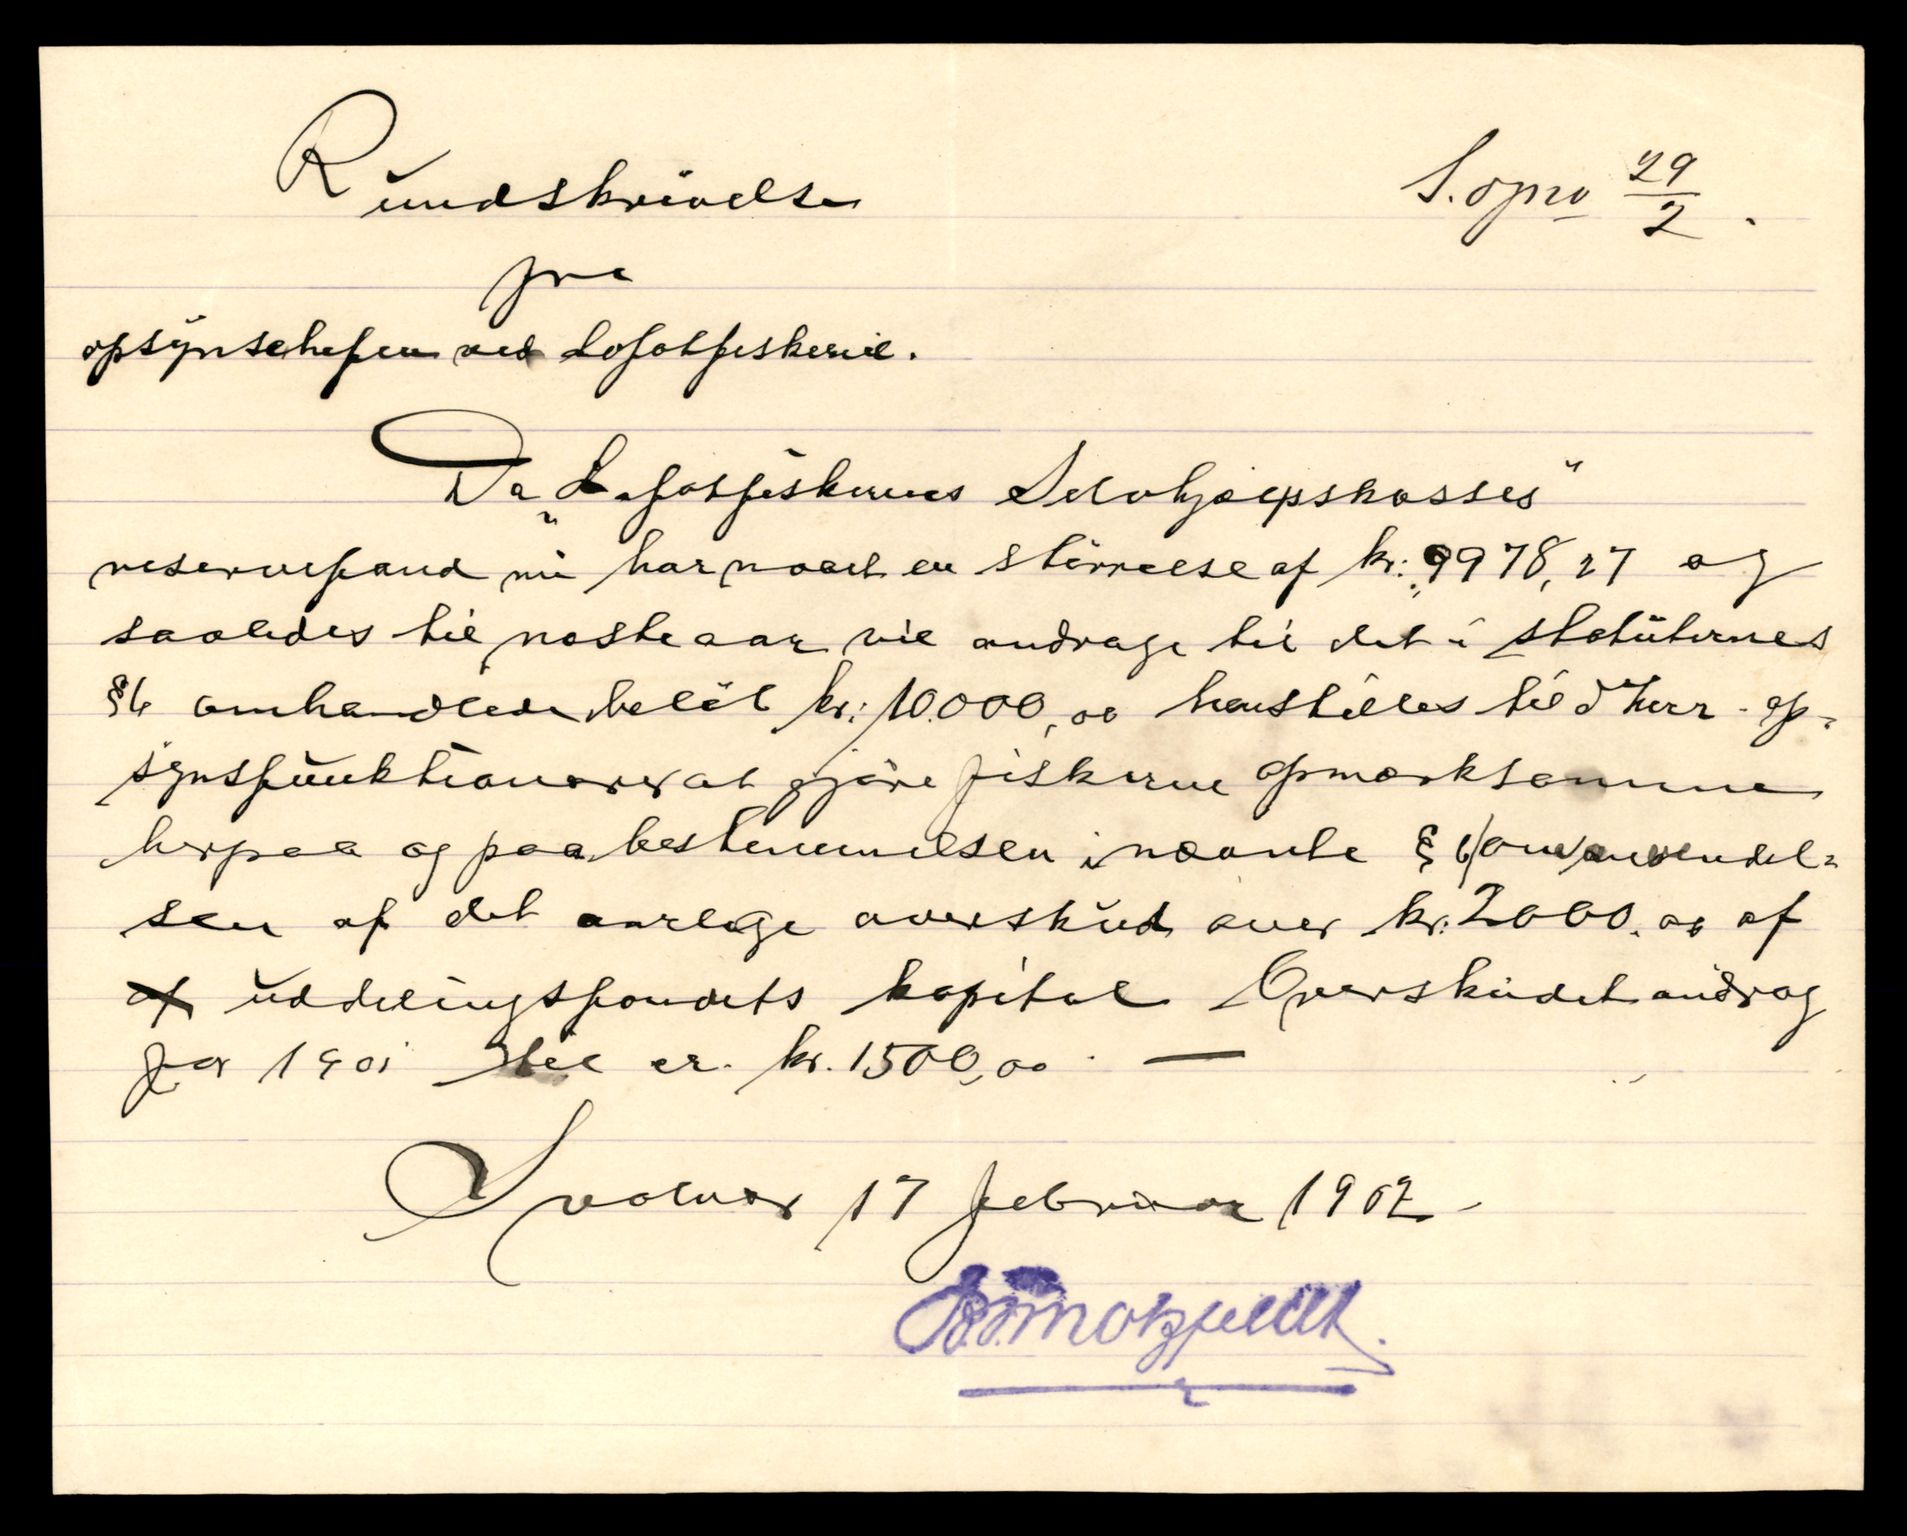 Rundskrivelse
S. opro 29/2.
fra
opsynschefen ved Lofotfiskeriet.
Da „Lofotfiskernes Selvhjælpskasses"
reservefond nu har naaet en störrelse af kr: 9978,27 og
saaledes til næste aar vil andrage til det i statuternes
§6 omhandlede belöb kr: 10.000,00 henstilles til d'Herr. op-
synsfunktionærer at gjöre fiskerne opmærksomme
herpaa og paa bestemmelsen i nævnte § 6 om anvendel-
sen af det aarlige overskud over kr. 2000.00 af
af uddelingsfondets kapital Overskudet androg
for 1901 til ca. kr. 1500,00. —
Svolvær 17 februar 1902
Knap Motzfeldt.